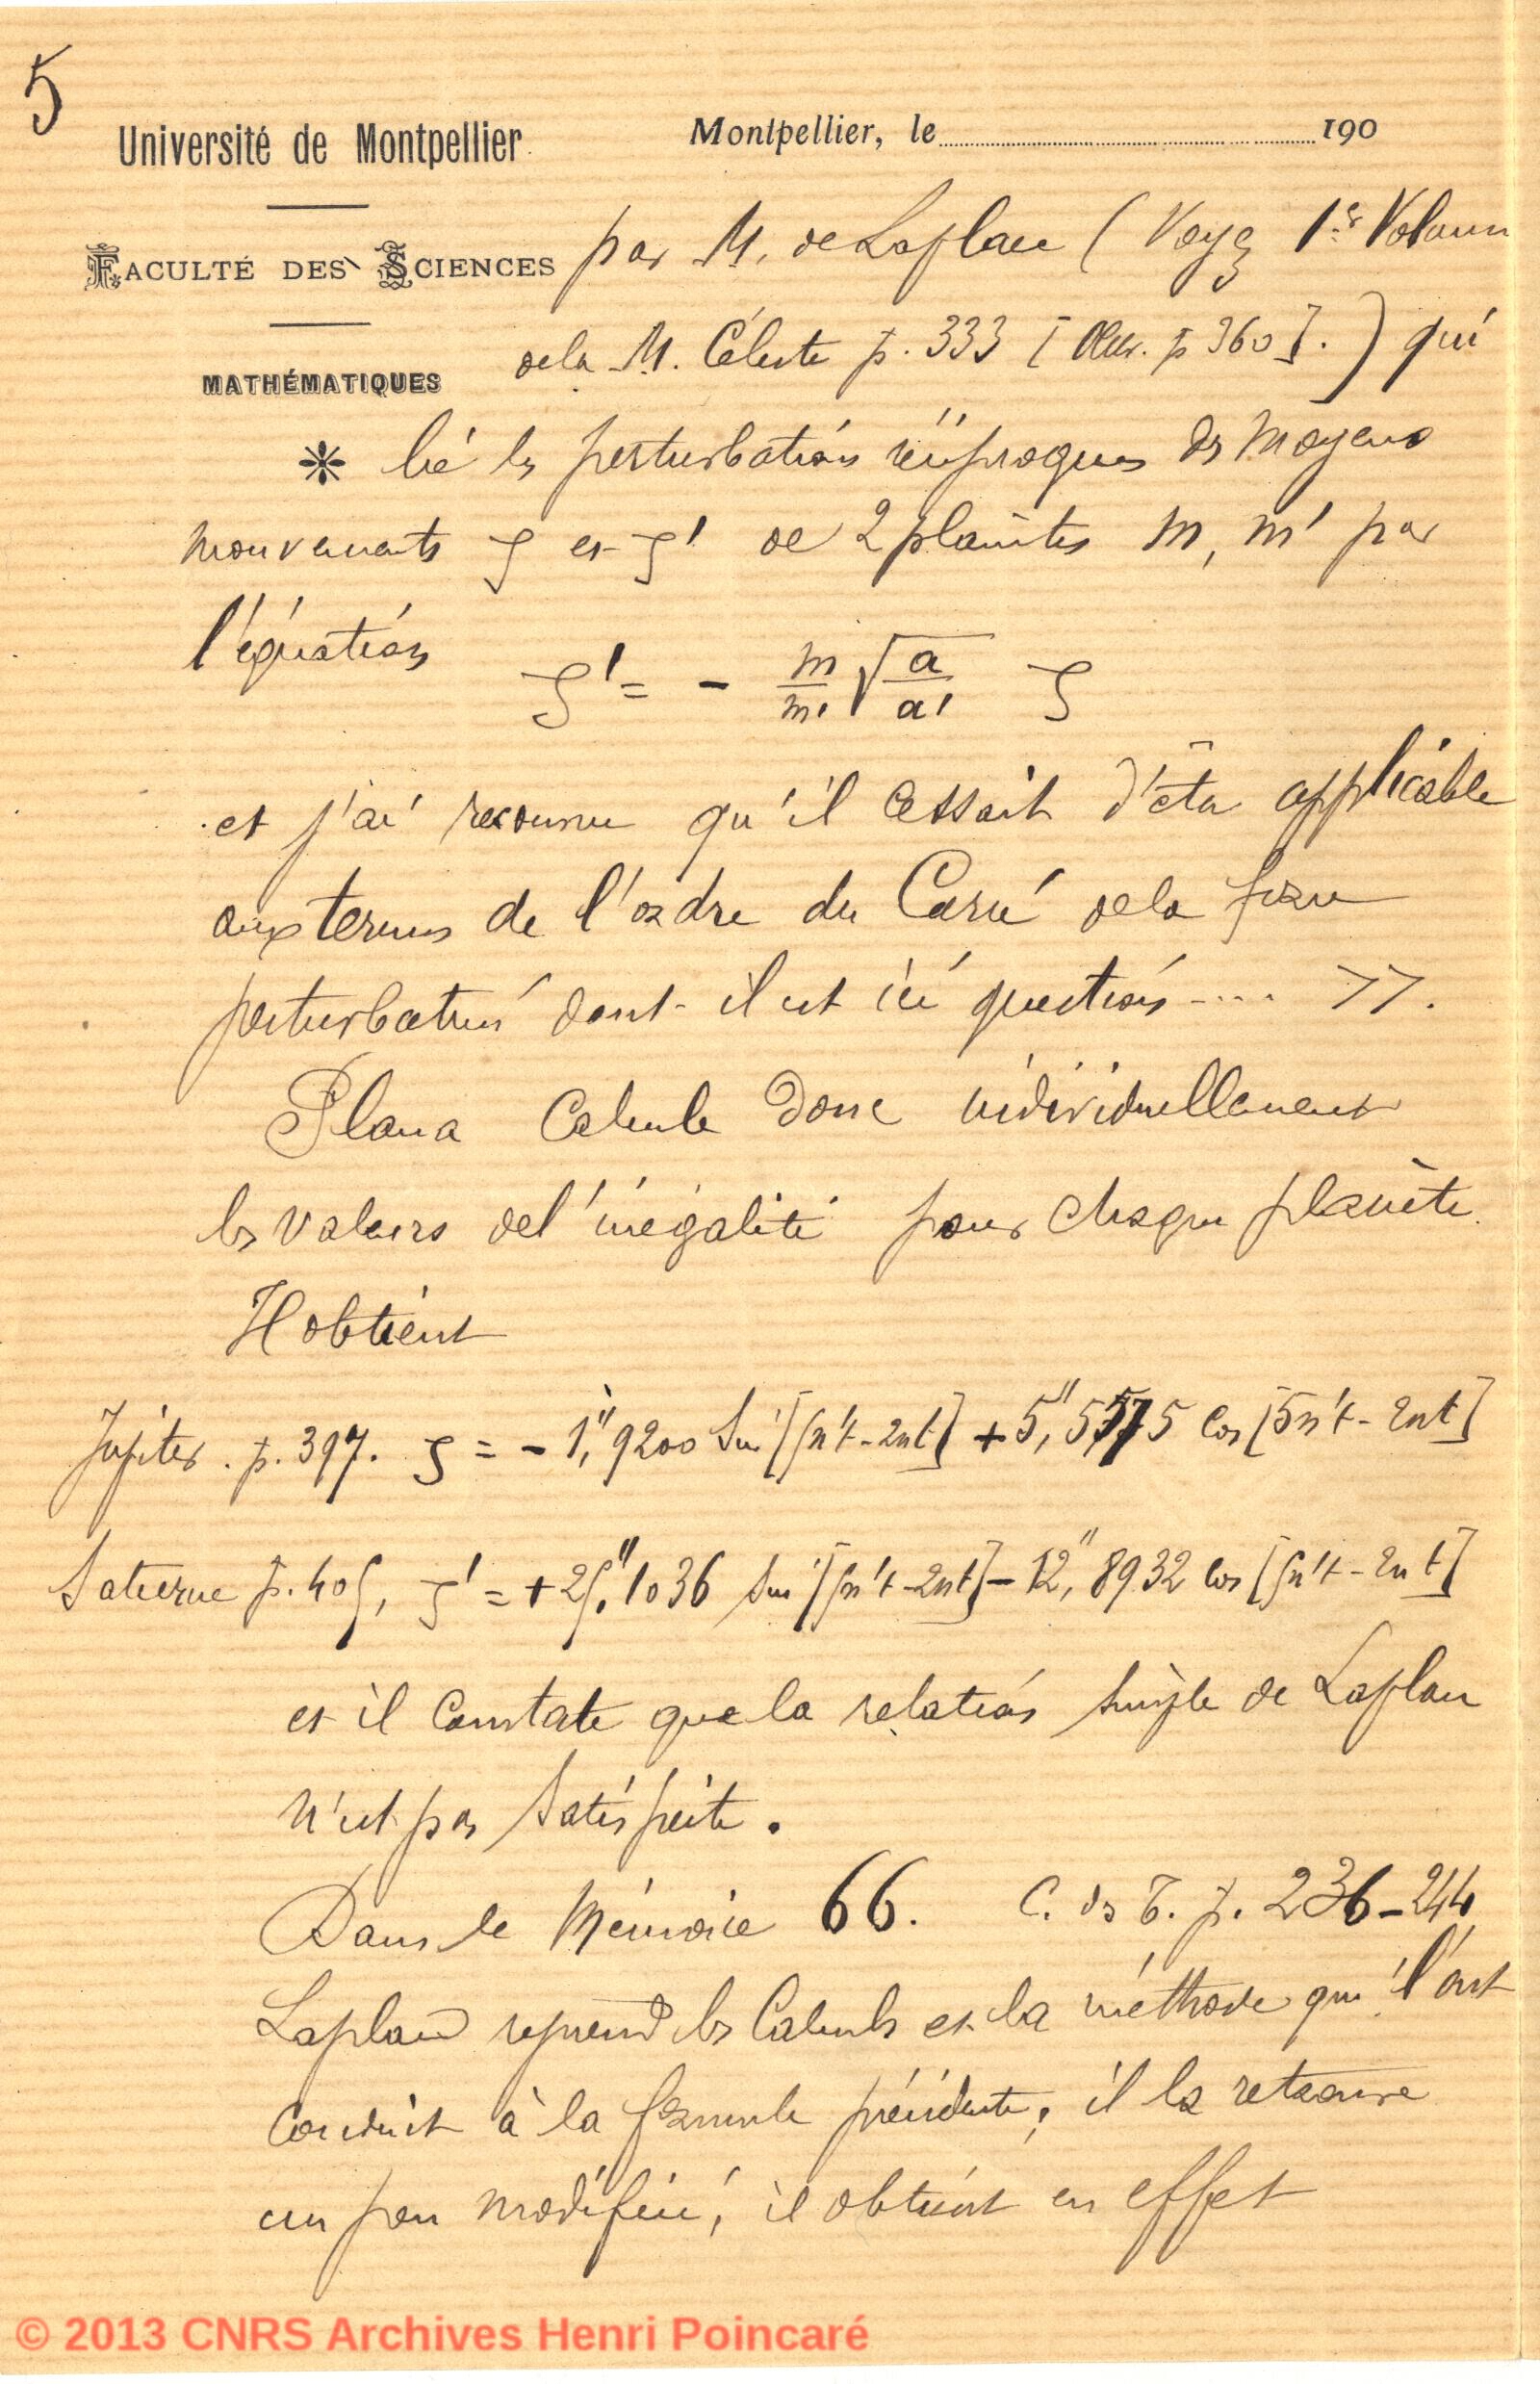 5
Université de Montpellier
Montpellier, le 190
FACULTÉ DES SCIENCES
par M. de Laplace (Voyez 1er Volume
MATHÉMATIQUES
de la M. Céleste p. 333 [Œuv. p 360]. ) qui
lie les perturbations réciproques des moyens
mouvements ζ et ζ' de 2 planètes m, m' par
l'équation
ζ' = - m/m' √a/a' ζ
et j'ai reconnu qu'il cessait d'être applicable
aux termes de l'ordre du Carré de la force
perturbatrice dont il est ici question .... >>.
Plana Calcule donc individuellement
les valeurs de l'inégalité pour chaque planète.
Il obtient
Jupiter. p. 397. ζ = - 1,"9200 Sin [5n't - 2nt] + 5,"5775 Cos [5n't - 2nt]
Saturne p. 405, ζ' = + 25,"1036 Sin [5n't - 2nt] - 12,"8932 Cos [5n't - 2nt]
et il Constate que la relation simple de Laplace
n'est pas satisfaite.
Dans le Mémoire 66. C. des T. p. 236-244
Laplace reprend les Calculs et la méthode qui l'ont
conduit à la formule précédente; il la retrouve
un peu modifiée; il obtient en effet
© 2013 CNRS Archives Henri Poincaré